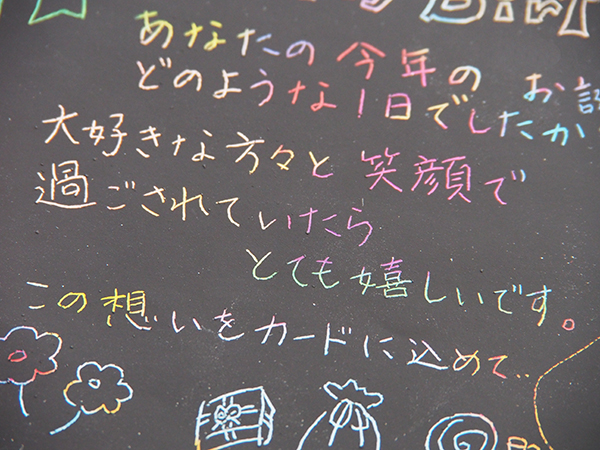 あなたの今年の お誕
どのような1日でしたか
大好きな方々と笑顔で
過ごされていたら
とても嬉しいです。
この想いをカードに込めて..